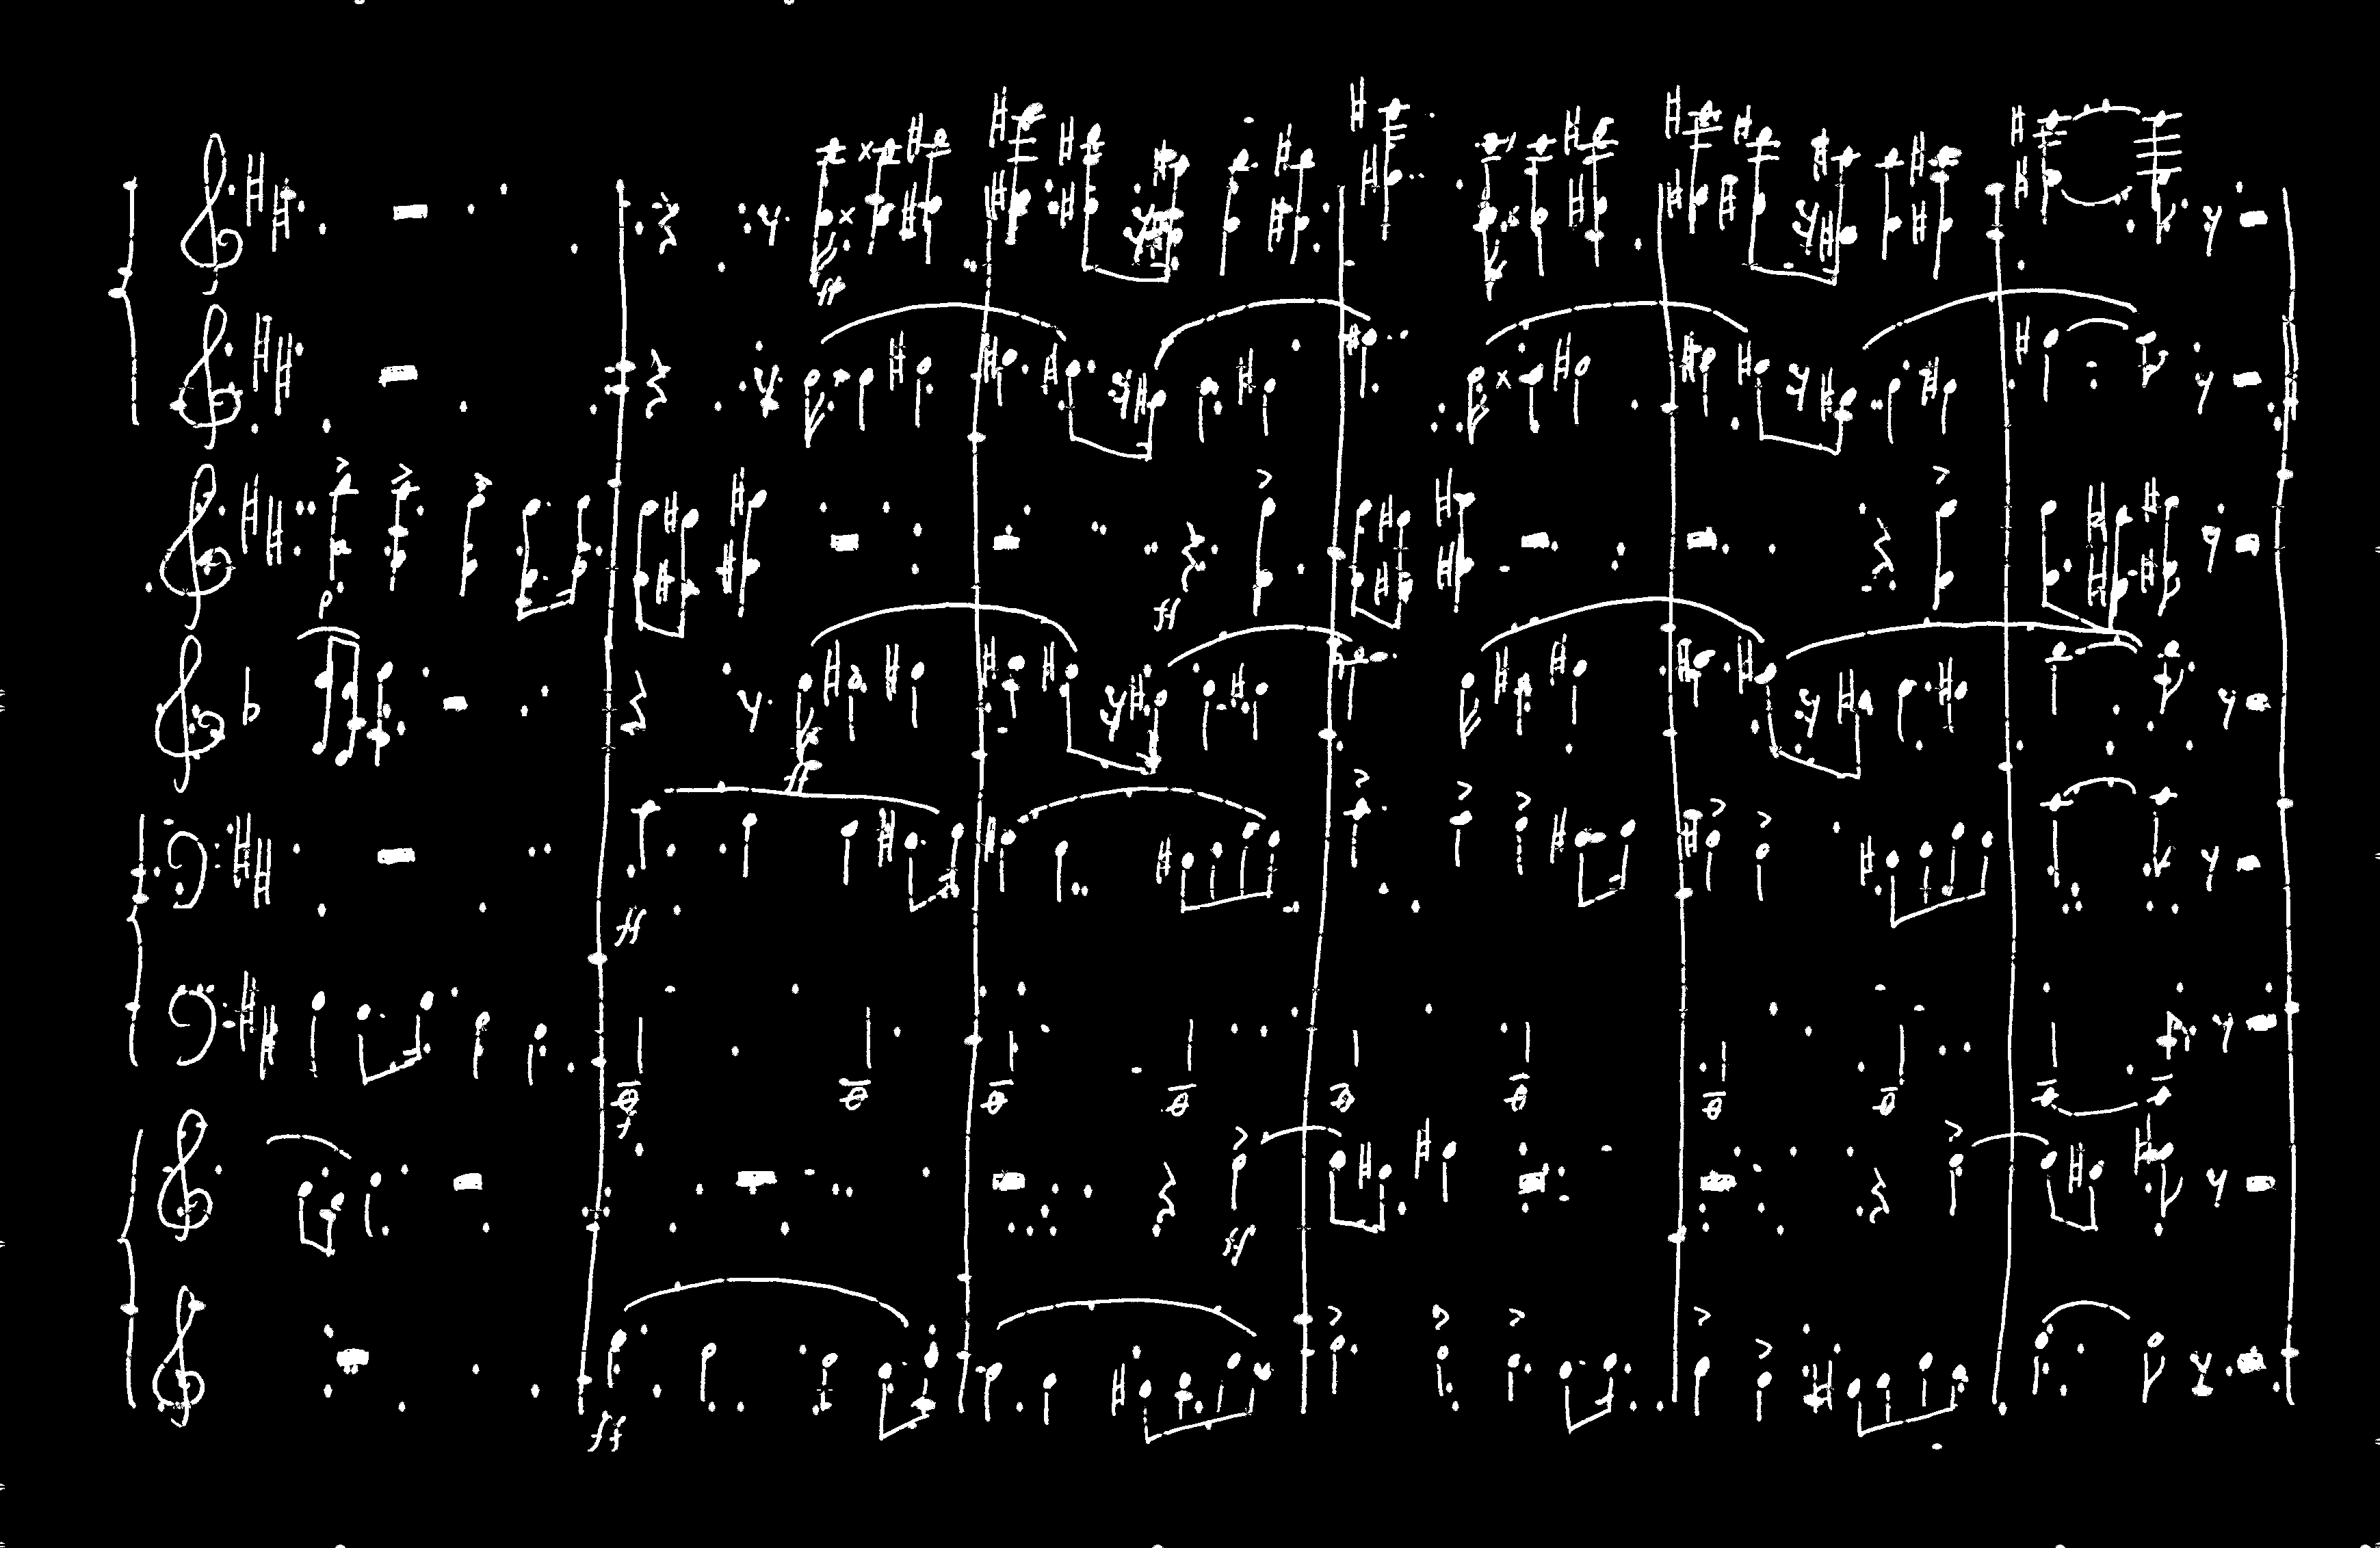 ff
p
ff
ff
ff
f
ff
ff